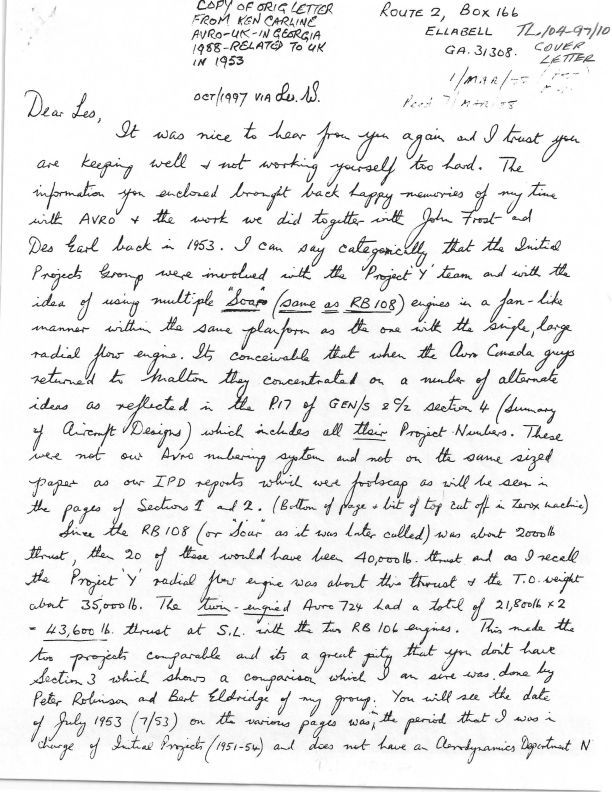 COPY OF ORIG LETTER
FROM KEN CARLINE
AVRO-UK-IN GEORGIA
1988-RELATED TO UK
IN 1953
OCT/1997 VIA
ROUTE 2, BOX 166
ELLABELL
GA. 31308.
TL/04-97/10
COVER
LETTER
1/MAR/
Dear Les,
It was nice to hear from you again and I trust you
are keeping well & not working yourself too hard. The
information you enclosed brought back happy memories of my time
with AVRO & the work we did togetter with John Frost and
Des Earl back in 1953. I can say categorically that the Initial
Projects Group were involved with the 'Project Y' team and with the
idea of using multiple "Soar" (same as RB 108) engines in a fan-like
manner within the same planform as the one with the single, large
radial flow engine. Its conceivable that when the Avro Canada guys
returned to Malton they concentrated on a number of alternate
ideas as reflected in the P.17 of GEN/S & section 4 (Summary
of Aircraft Designs) which includes all their Project Numbers. These
were not our Avro numbering system and not on the same sized
paper as our IPD reports which were foolscap as will be seen in
the pages of Sections 1 and 2. (Bottom of page & bit of top cut off in Zerox machine)
Since the RB 108 (or "Soar" as it was later called) was about 2000lb
thrust, then 20 of these would have been 40,000lb. thrust and as I recall
the Project 'Y' radial flow engine was about this thrust & the T.O. weight
about 35,000lb. The twin-engied Avro 724 had a total of 21,800lb x 2
= 43,600 lb. thrust at S.L. with the two RB 106 engines. This made the
two projects comparable and its a great pity that you don't have
Section 3 which shows a comparison which I am sure was done by
Peter Robinson and Bert Eldridge of my group. You will see the date
of July 1953 (7/53) on the various pages was in the period that I was in
charge of Initial Projects (1951-54) and does not have an Aerodynamics Department N